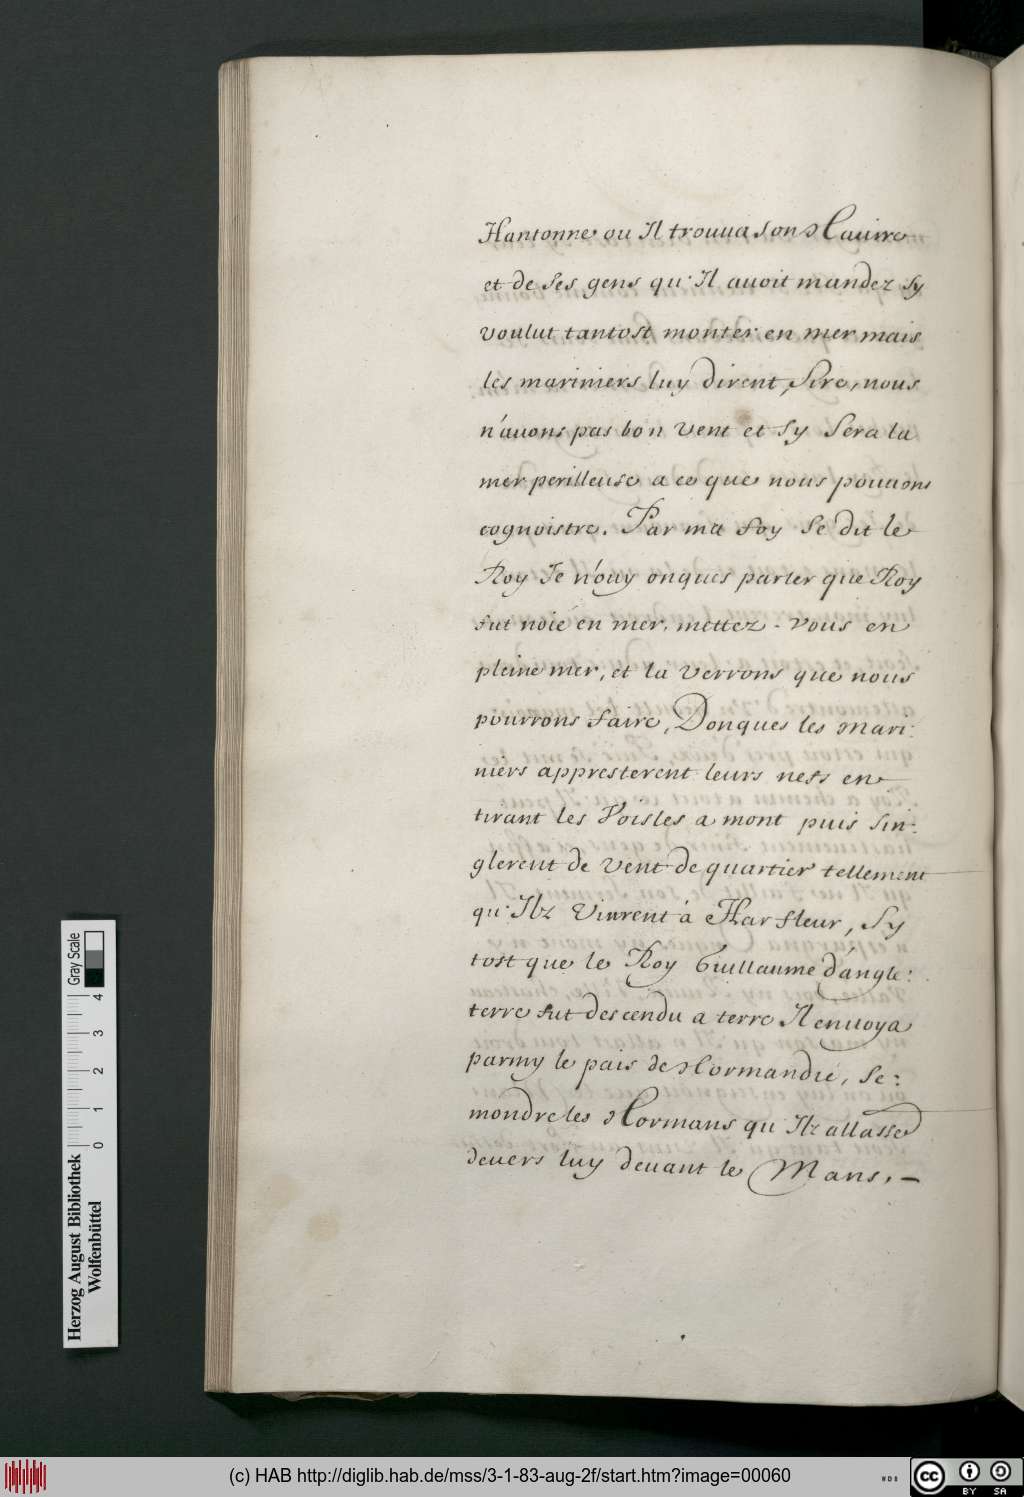 Hantonne ou Il trouua son Nauire
et de ses gens qu'Il auoit mandez sy
voulut tantost monter en mer mais
les mariniers luy dirent, Sire, nous
n'auons pas bon vent et sy sera la
mer perilleuse a ce que nous pouuons
cognoistre. Par ma foy se dit le
Roy Je n'ouy onques parler que Roy
fut noié en mer, mettez-vous en
pleine mer, et la verrons que nous
pourrons faire, Donques les mari:
niers appresterent leurs nefs en
tirant les Voisles a mont puis sin:
glerent de vent de quartier tellement
qu'Ilz Vinrent à Harfleur, Sy
tost que le Roy Guillaume d'angle:
terre fut descendu a terre Il enuoya
parmy le pais de Normandie, se:
mondre les Normans qu'Ilz allasse
deuers luy deuant le Mans. –
Herzog August Bibliothek
Wolfenbüttel
0 1 2 3 4
Gray Scale
(c) HAB http://diglib.hab.de/mss/3-1-83-aug-2f/start.htm?image=00060
WDB
cc BY SA